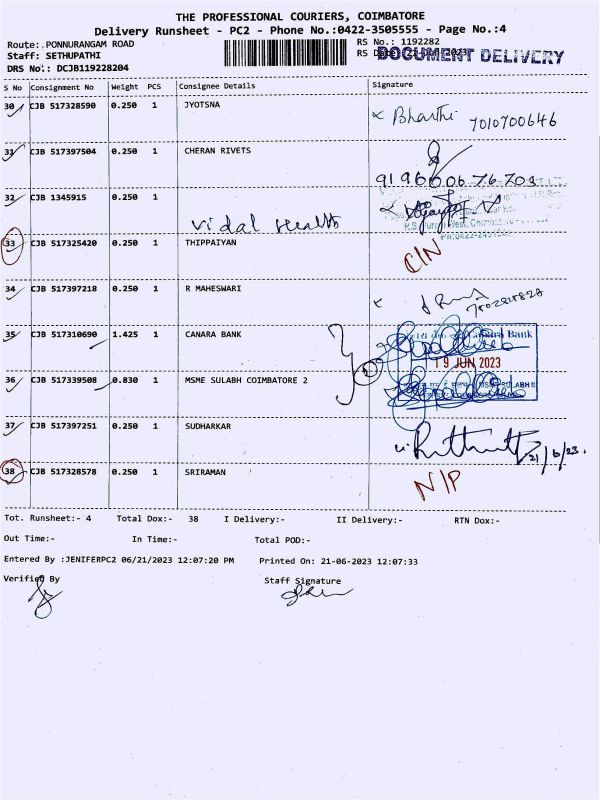 THE PROFESSIONAL COURIERS, COIMBATORE
Delivery Runsheet - PC2 - Phone No.:0422-3505555 - Page No.:4
Route: PONNURANGAM ROAD
RS No.: 1192282
Staff: SETHUPATHI
RS
DOCUMENT DELIVERY
DRS No.: DCJB119228204
S No Consignment No Weight PCS Consignee Details Signature
30 CJB 517328590 0.250 1 JYOTSNA
Bharathi 7010700646
31 CJB 517397504 0.250 1 CHERAN RIVETS
32 CJB 1345915 0.250 1
Vidal Health
33 CJB 517325420 0.250 1 THIPPAIYAN
C/N
34 CJB 517397218 0.250 1 R MAHESWARI
35 CJB 517310690 1.425 1 CANARA BANK
Bank
19 JUN 2023
36 CJB 517339508 0.830 1 MSME SULABH COIMBATORE 2
37 CJB 517397251 0.250 1 SUDHARKAR
21/6/23.
38 CJB 517328578 0.250 1 SRIRAMAN
N/P
Tot. Runsheet:- 4 Total Dox:- 38 I Delivery:- II Delivery:- RTN Dox:-
Out Time:- In Time:- Total POD:-
Entered By :JENIFERPC2 06/21/2023 12:07:20 PM Printed On: 21-06-2023 12:07:33
Verified By Staff Signature